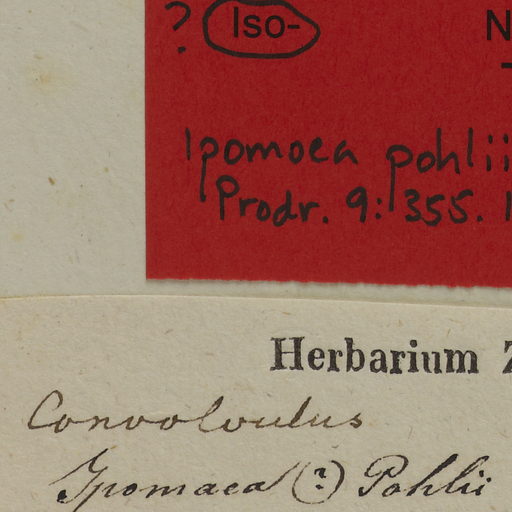 ? Iso- N
Ipomoea pohlii
Prodr. 9: 355. 1
Herbarium Z
Convolvulus
Ipomaea (?) Pohlii